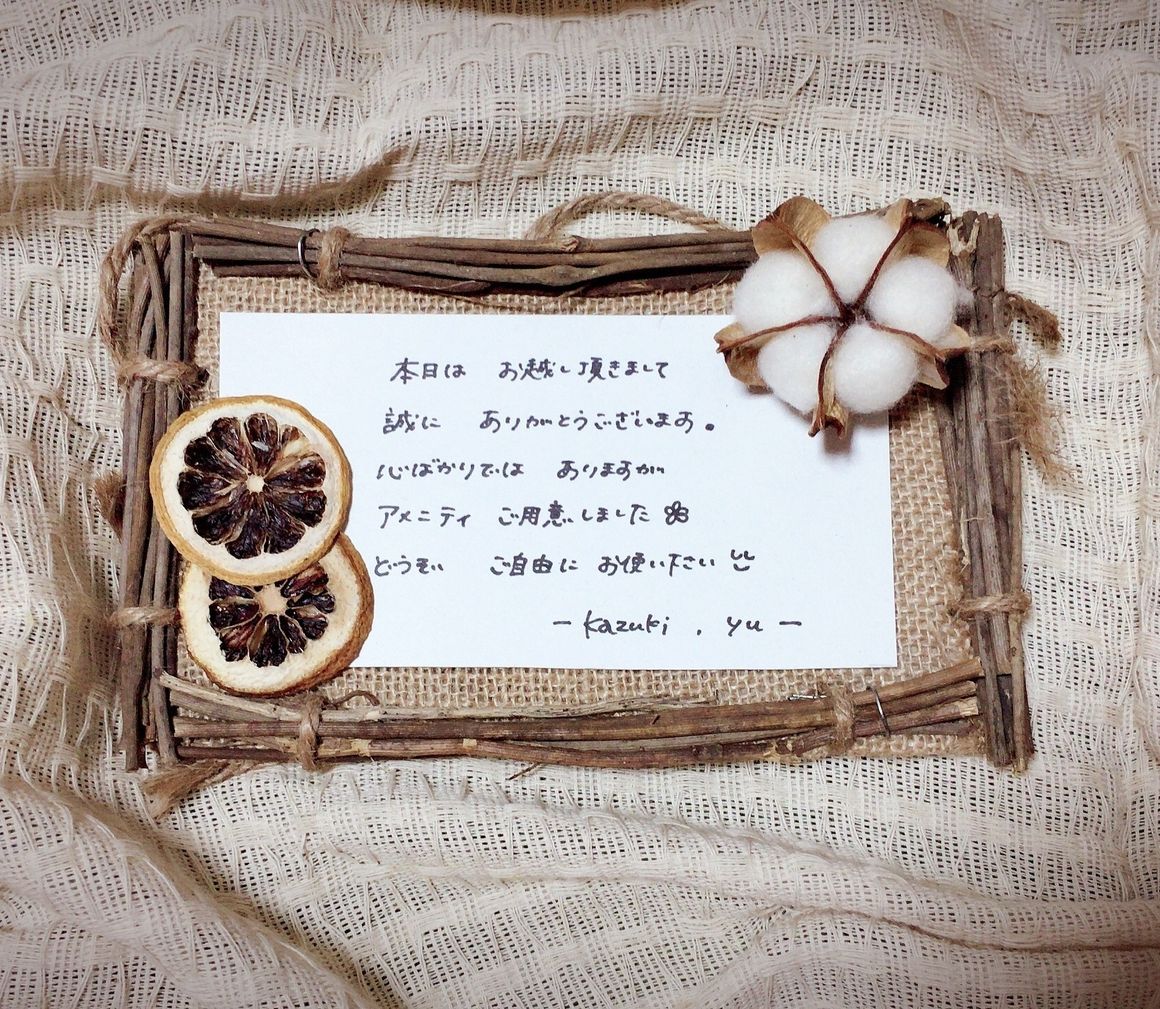 本日は お越し頂きまして
誠に ありがとうございます。
心ばかりでは ありますが
アメニティ ご用意しました
どうぞ ご自由に お使い下さい
- kazuki . yu -